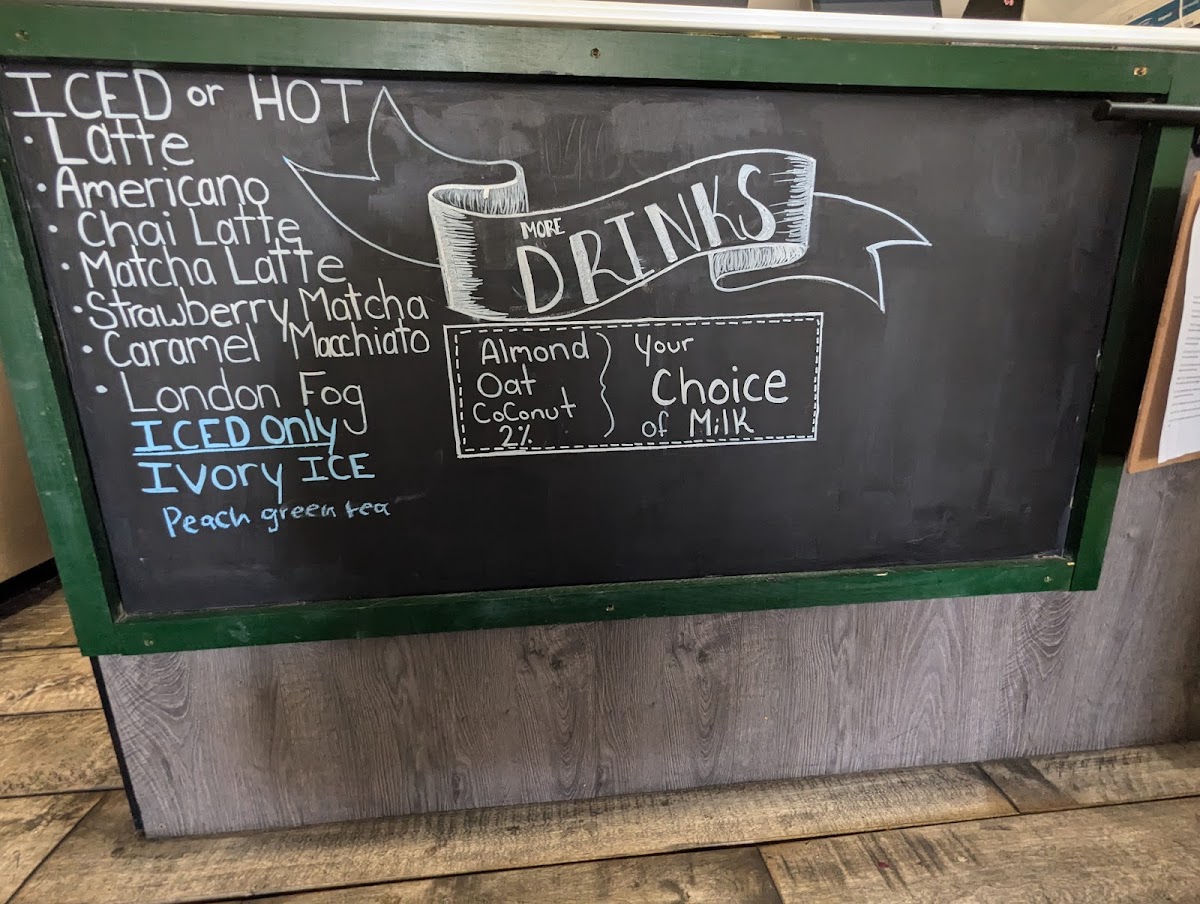 ICED or HOT
• Latte
• Americano
• Chai Latte
• Matcha Latte
• Strawberry Matcha
• Caramel Macchiato
• London Fog
ICED Only
Ivory ICE
Peach green tea
MORE
DRINKS
Almond
Oat
Coconut
2%
Your
Choice
of Milk